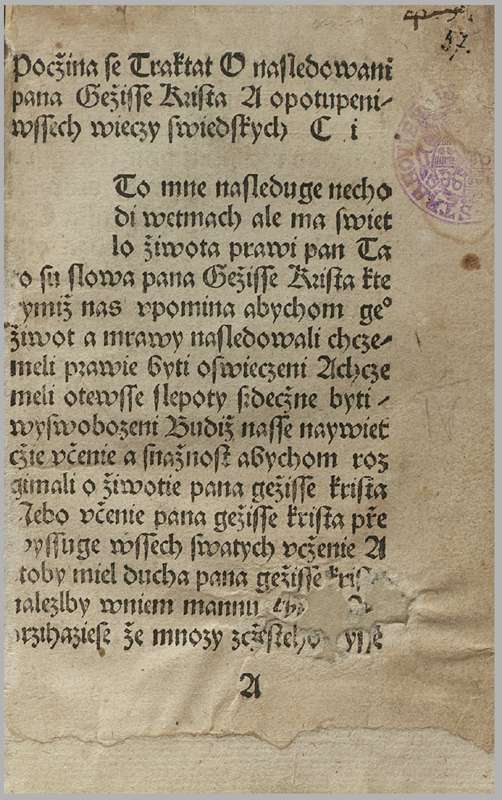 57.
Pocžina se Traktat O nasledowani
pana Gežisse Krista A opotupeni⸗
wssech wieczy swiedskych C i
To mne nasleduge necho
di wetmach ale ma swiet
lo žiwota prawi pan Ta
o su slowa pana Gežisse Krista kte
ymiž nas vpomina abychom geº
žiwot a mrawy nasledowali chcze⸗
meli prawie byti oswieczeni Achcze
meli otewsse slepoty srdecžne byti ⸗
wyswobozeni Budiž nasse naywiet
cžie včenie a snažnost abychom roz
gimali o žiwotie pana gežisse krista
Nebo včenie pana gežisse krista pře
wyssuge wssech swatych vcženie A
toby miel ducha pana gežisse kris
nalezlby wniem mannu
przihaziese že mnozy zcžasteho
A